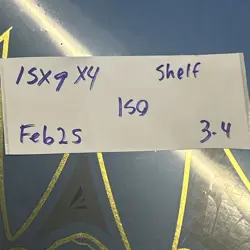 15x9 x4 Shelf
150
Feb25 3.4